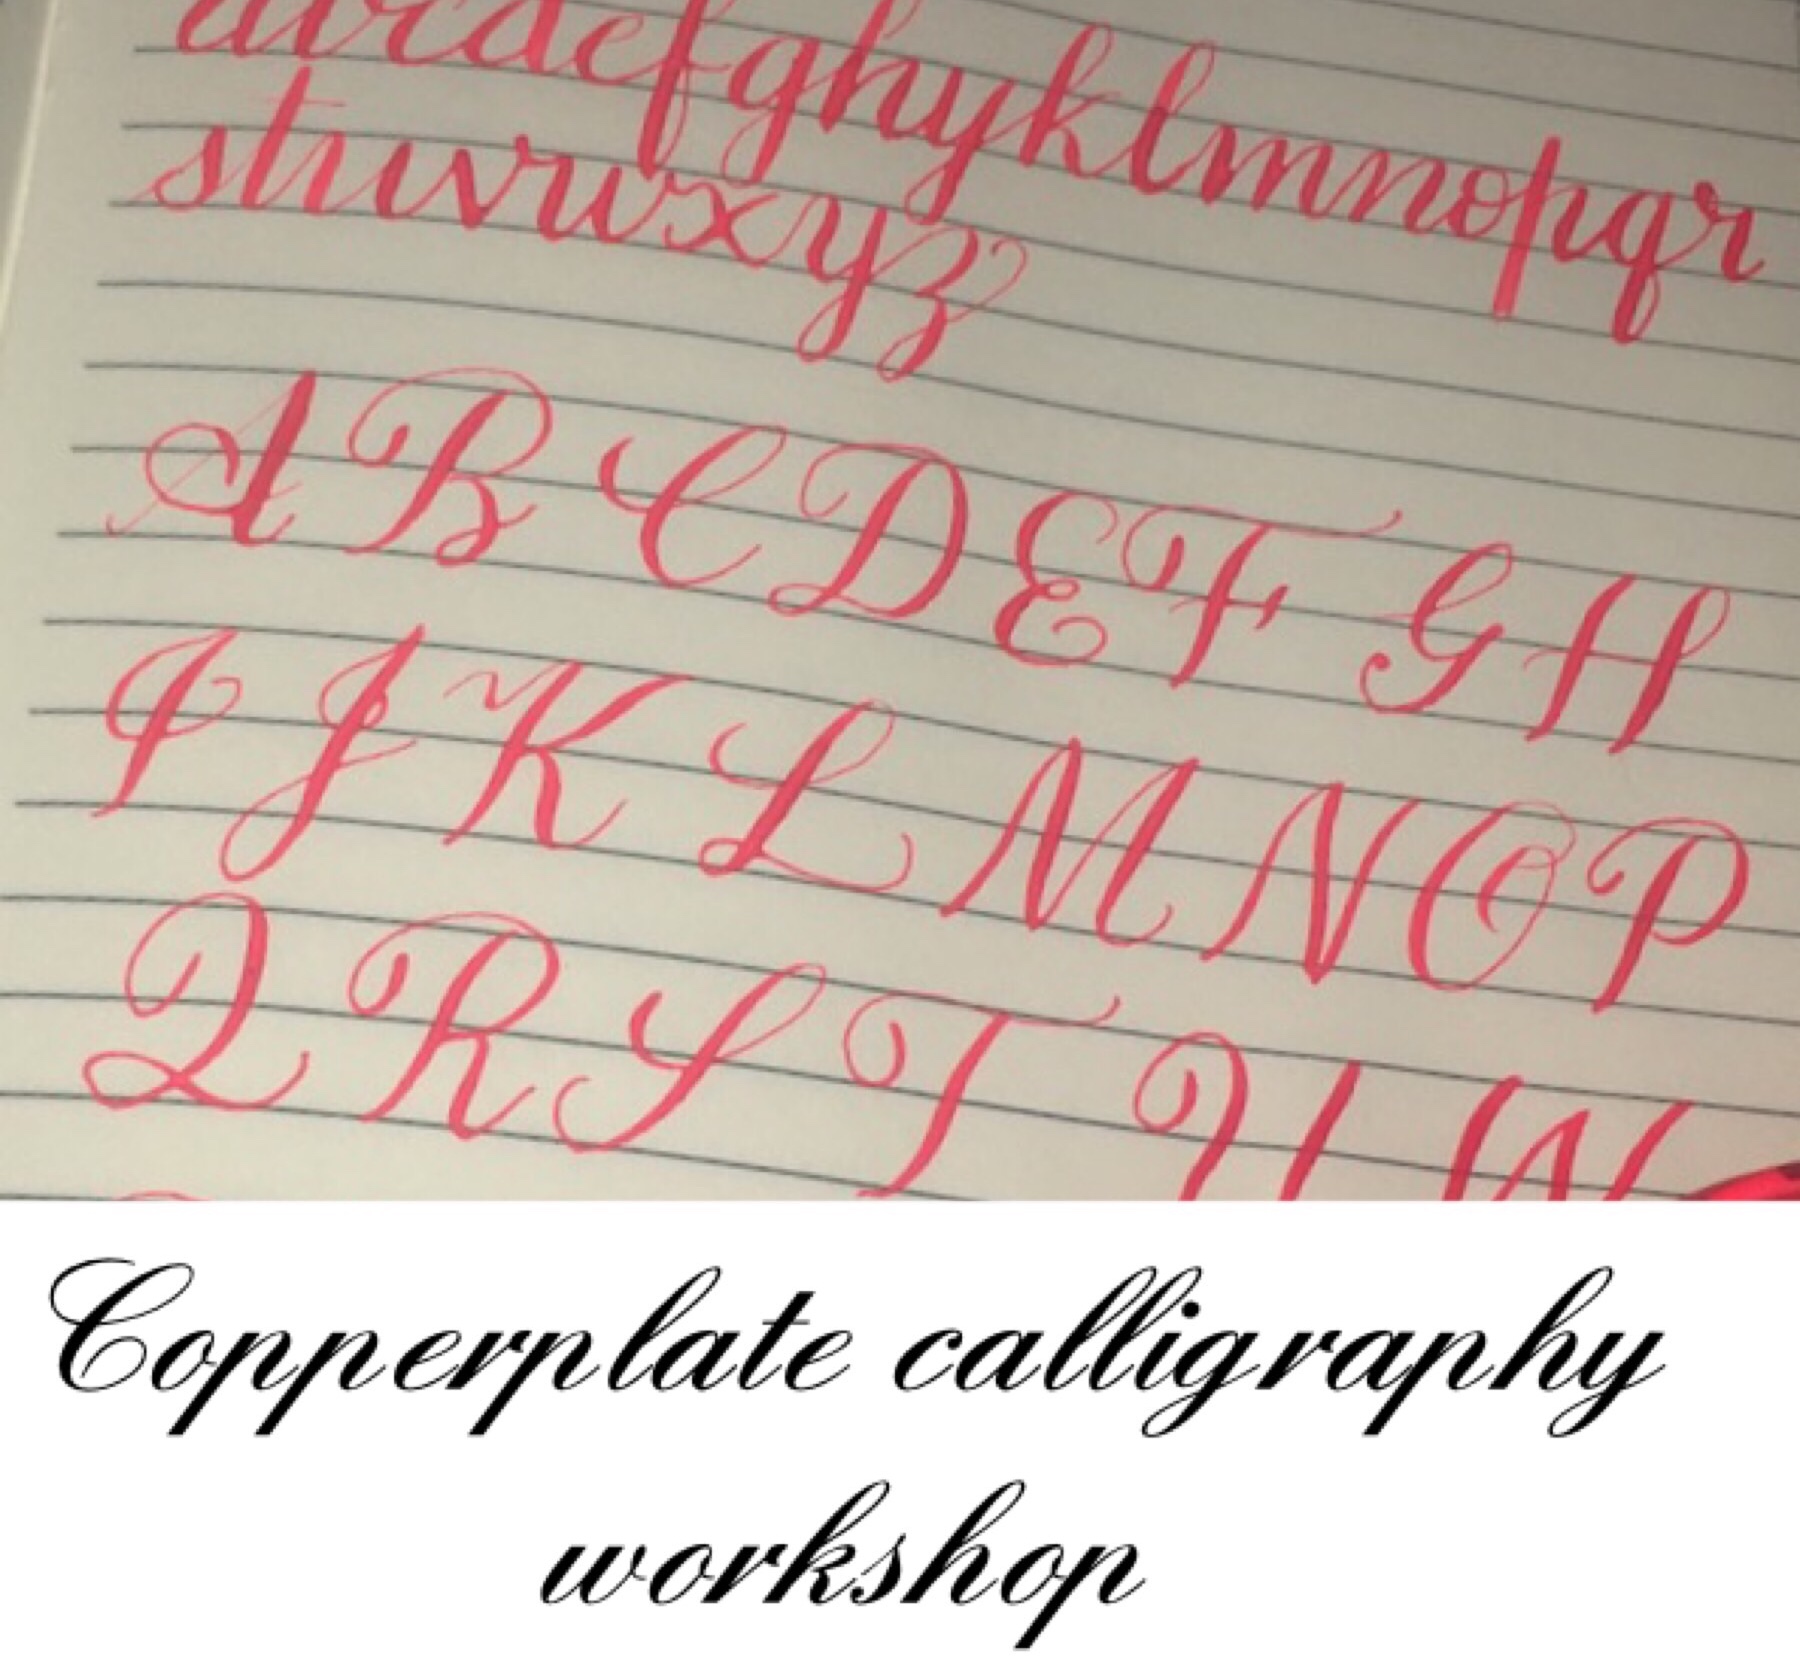 abcdefghijklmnopqr
stuvwxyz
A B C D E F G H
I J K L M N O P
Q R S T U W
Copperplate calligraphy
workshop